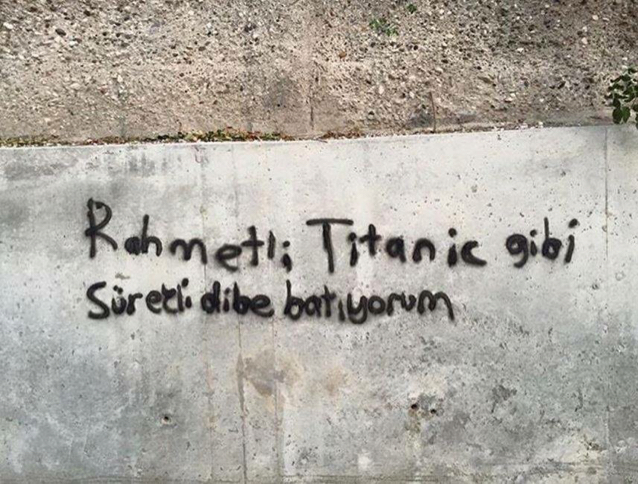 Rahmetli Titanic gibi
Süretli dibe batıyorum